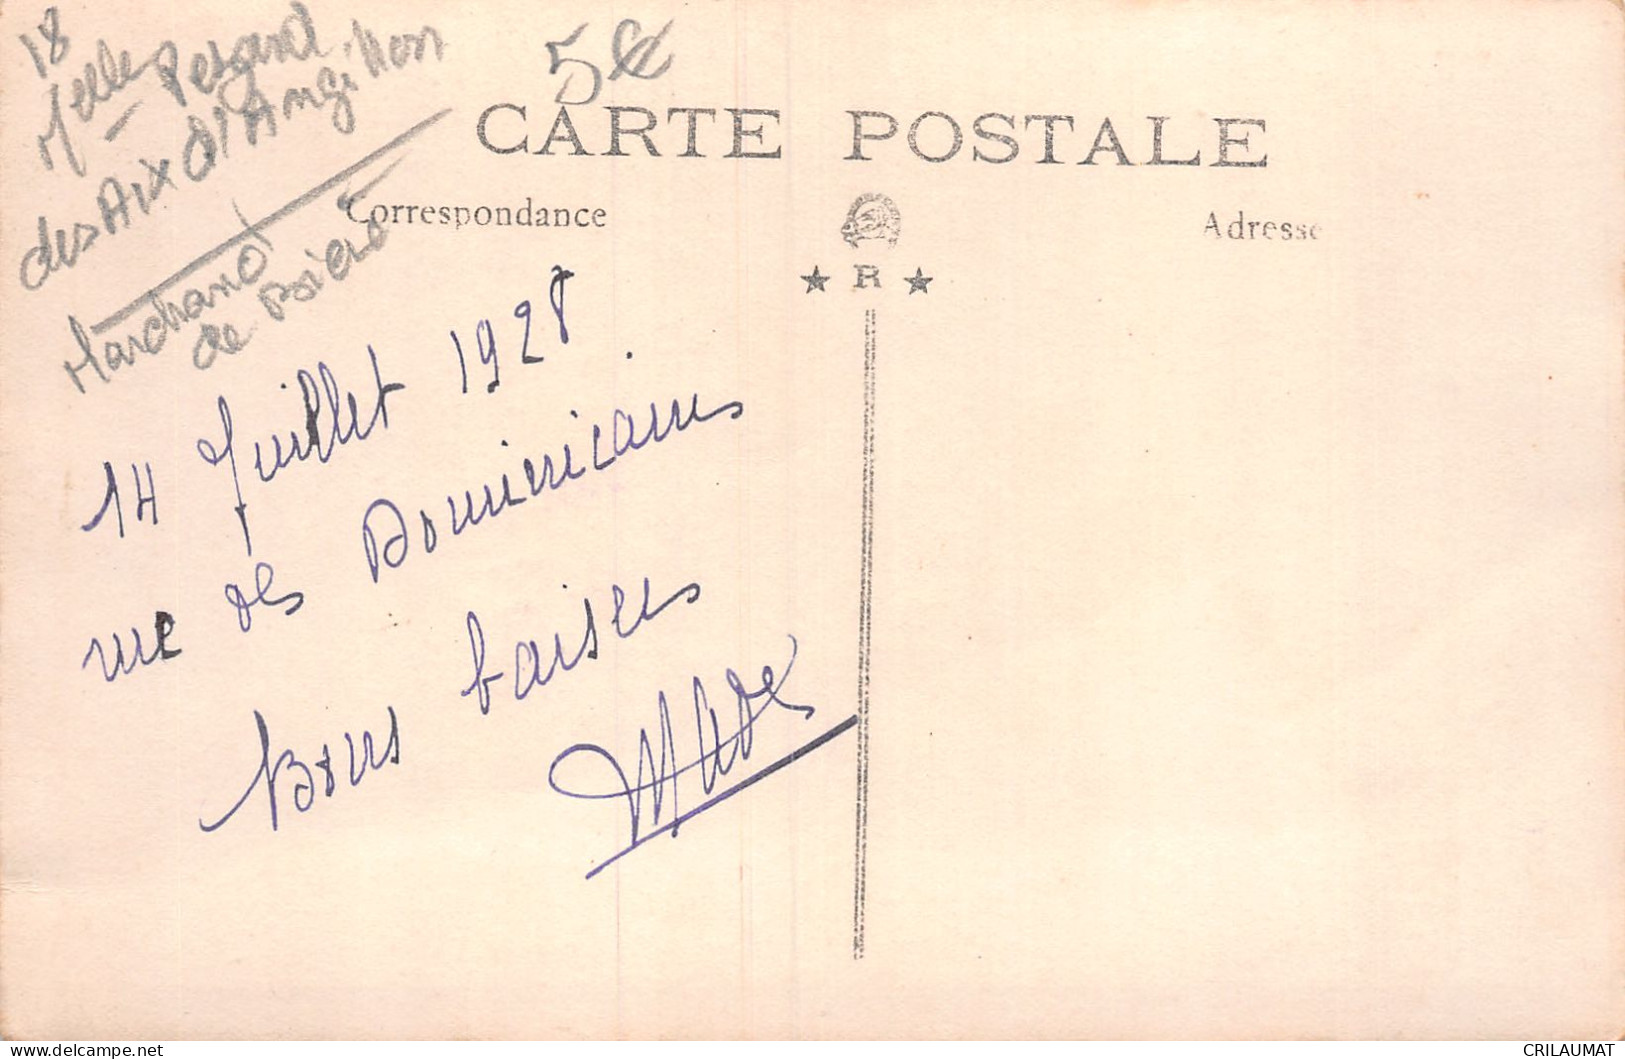 18
Melle Perard
des Aix d'Angillon
Marchand
de
5 €
CARTE POSTALE
Correspondance
Adresse
R
14 Juillet 1928
rue des Dominicains
Bons baisers
Made
CRILAUMAT